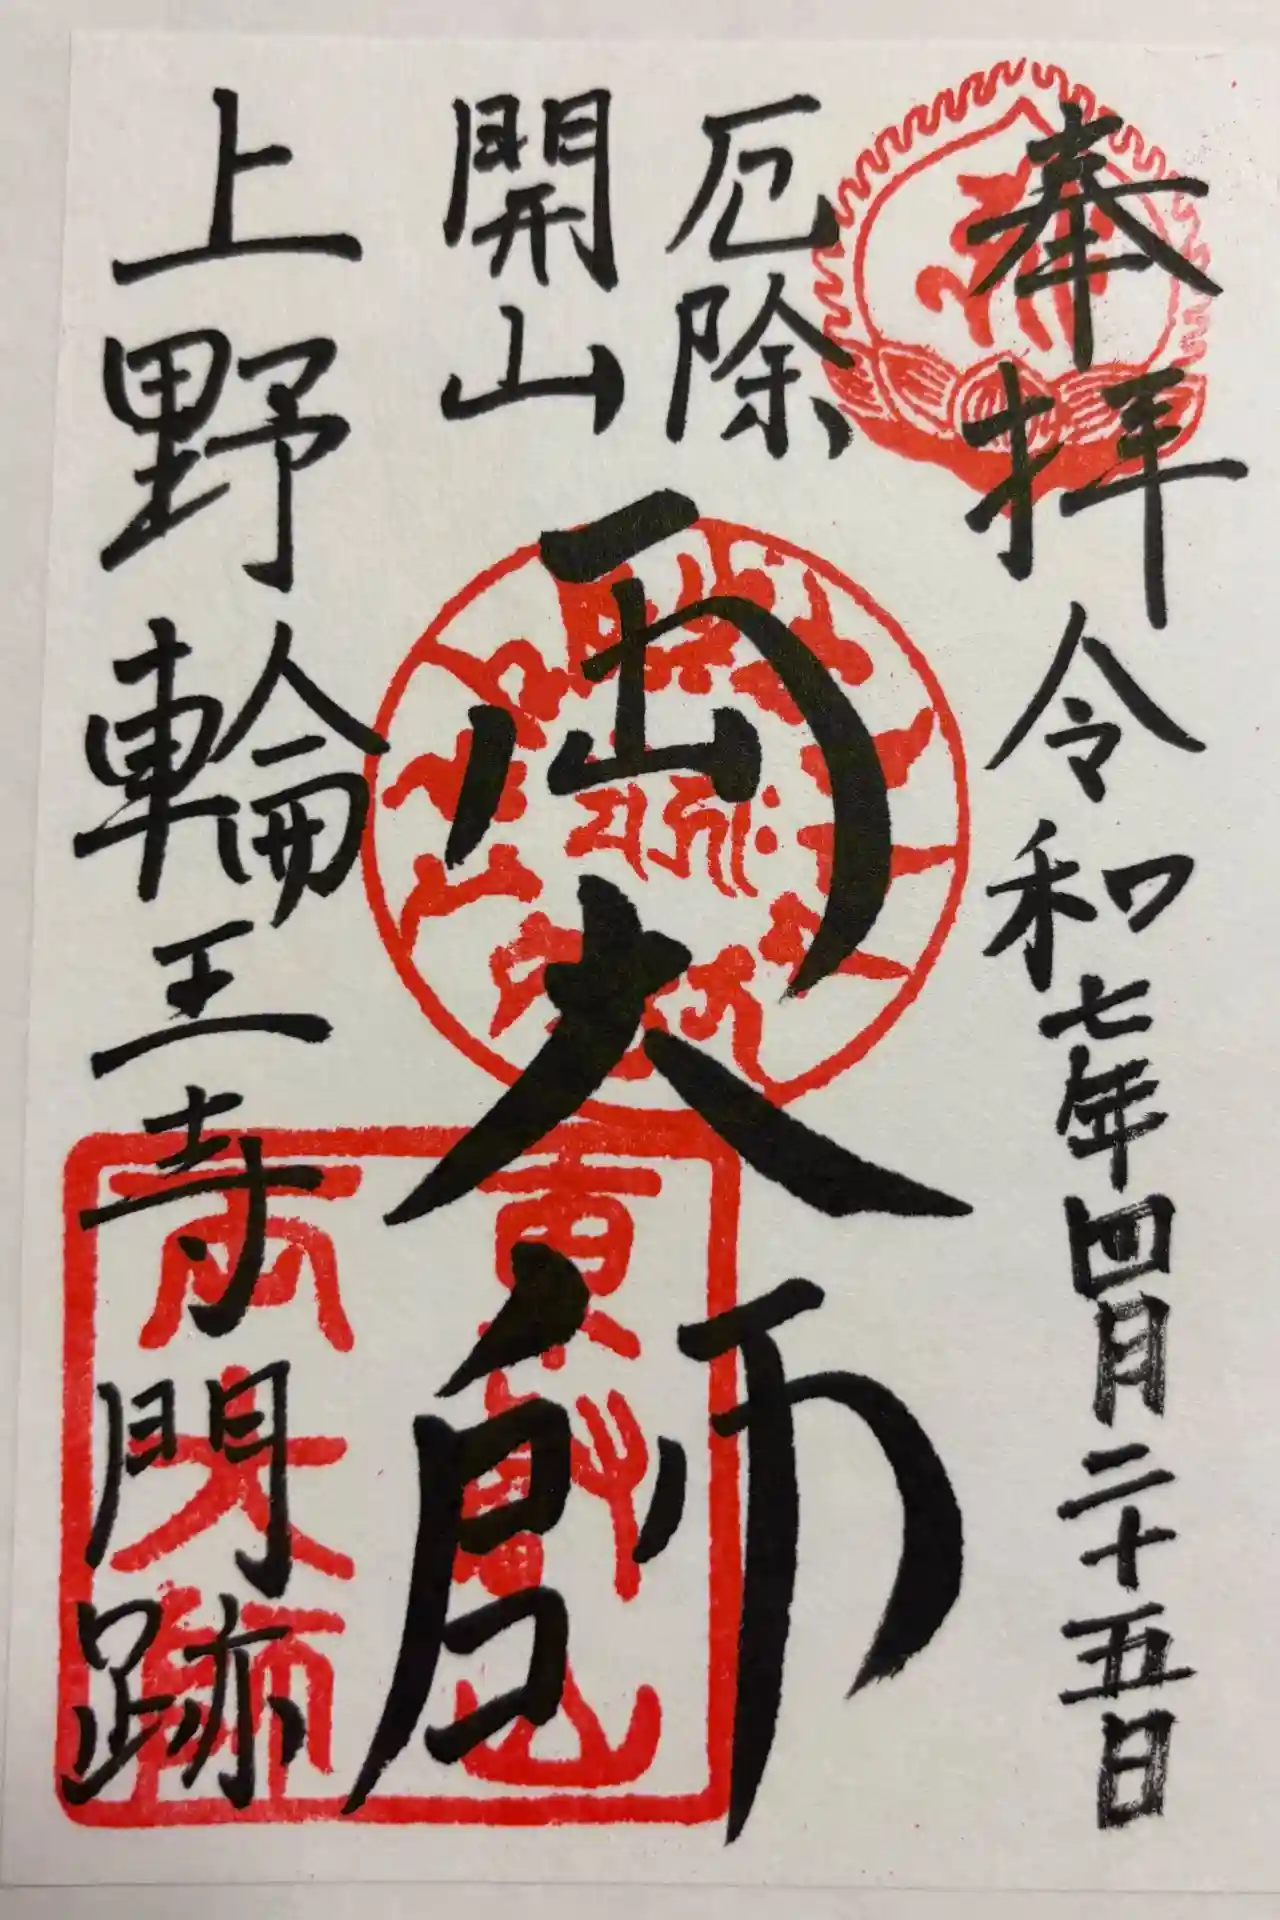 奉拝 令和七年四月二十五日
厄除
開山
両大師
上野輪王寺門跡
東叡山
両大師